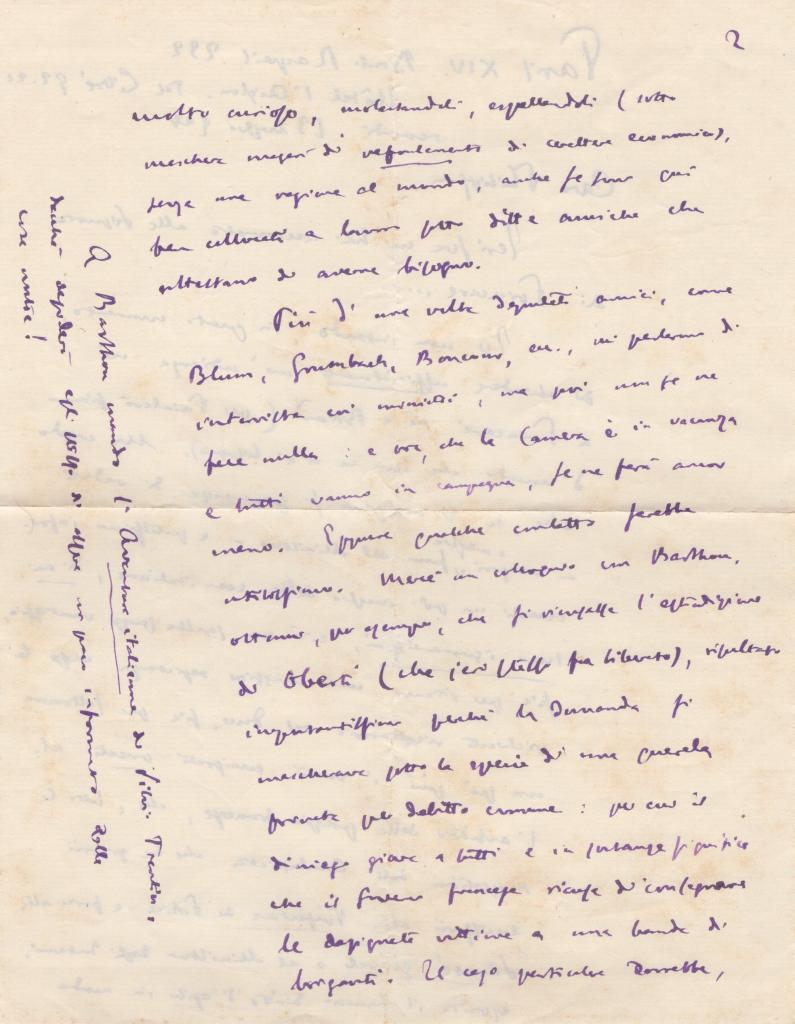 2
molto curioso, molestandoli, espellandoli (sotto
maschera magari di refoulements di carattere economico),
senza una ragione al mondo, anche se sono qui
ben collocati a lavoro sotto ditte amiche che
attestano di averne bisogno.
Più d'una volta deputati amici, come
Blum, Grumbach, Boncour, ecc., mi parlarono di
intervista coi ministri, ma poi non se ne
fece nulla: e ora, che la Camera è in vacanza
e tutti vanno in campagna, se ne farà ancor
meno. Eppure qualche contatto sarebbe
utilissimo. Mercé un colloquio con Barthou,
ottenni, per esempio, che si rifiutasse l'estradizione
di Oberti (che jeri stesso fu liberato), risultato
importantissimo perché la domanda si
mascherava sotto la specie di una querela
privata per delitto comune: per cui il
diniego giova a tutti e in sostanza significa
che il Governo francese ricusa di consegnare
le designate vittime a una banda di
briganti. Il caso particolare dovrebbe,
A Barthou mando l'Aventure italienne di Silvio Trentin:
desidero egli possa essere un poco informato delle
cose nostre!